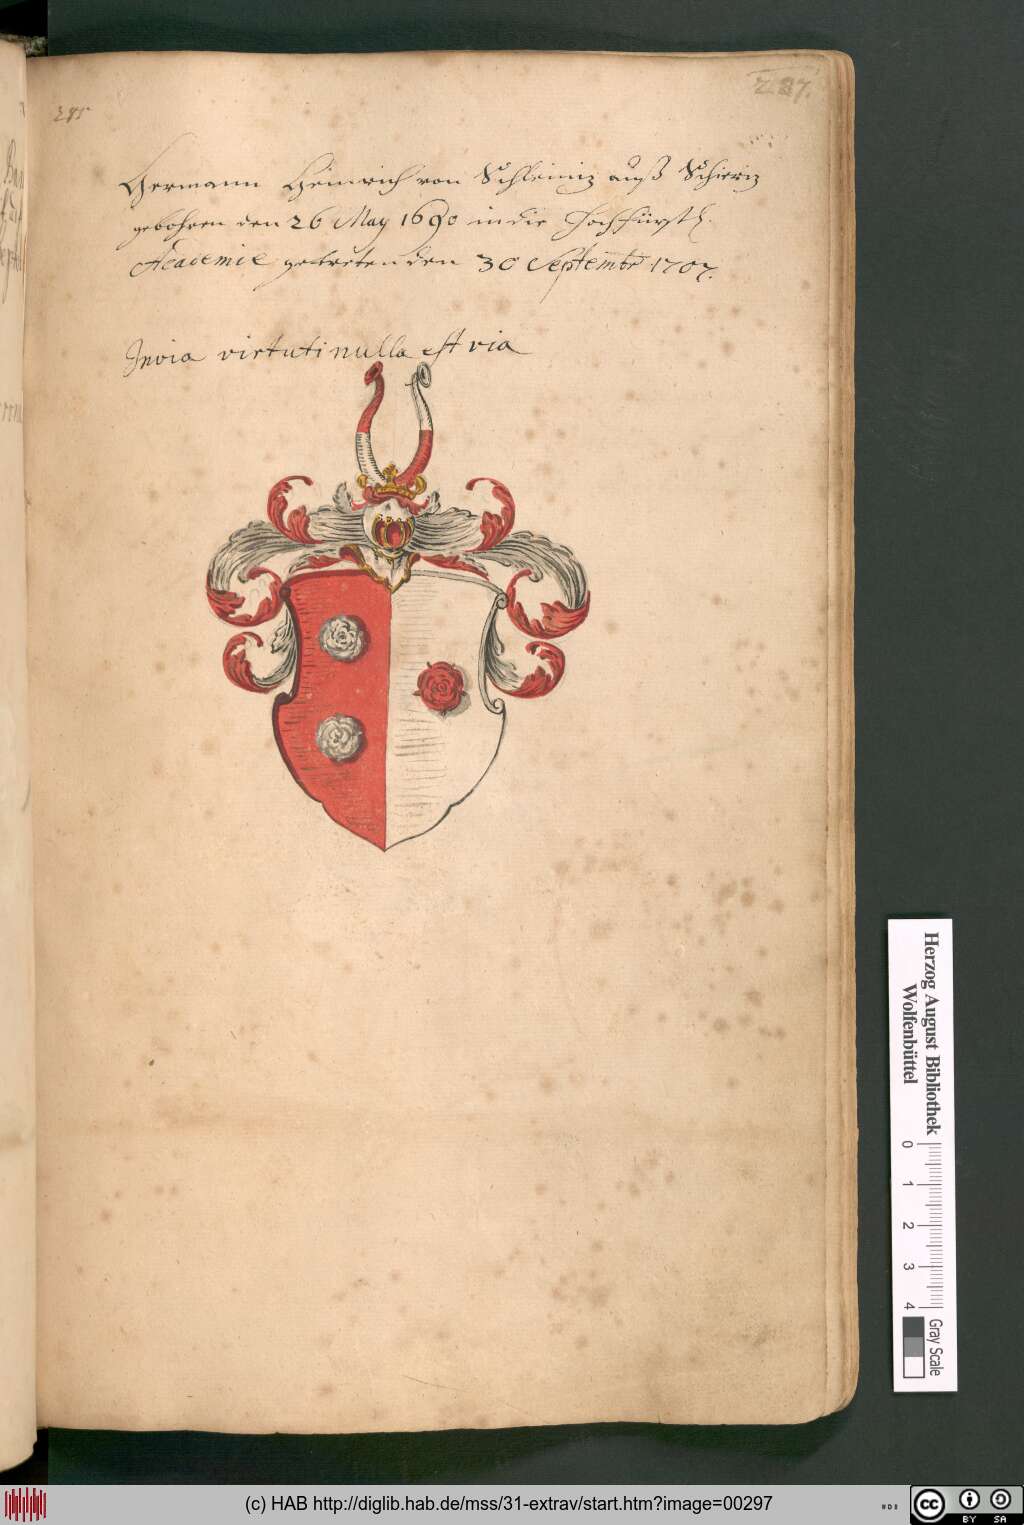 287.
285
Hermann Heinrich von Schleiniz auß Schieriz
gebohren den 26 May 1690 in die Hochfürstl.
Academie getreten den 30 Septembr 1707.
Invia virtuti nulla est via
Herzog August Bibliothek
Wolfenbüttel
0 1 2 3 4
Gray Scale
(c) HAB http://diglib.hab.de/mss/31-extrav/start.htm?image=00297
cc BY SA